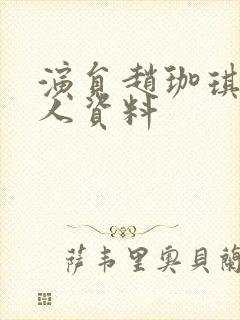 演員趙珈琪
人資料
萨韦里奥贝蘭